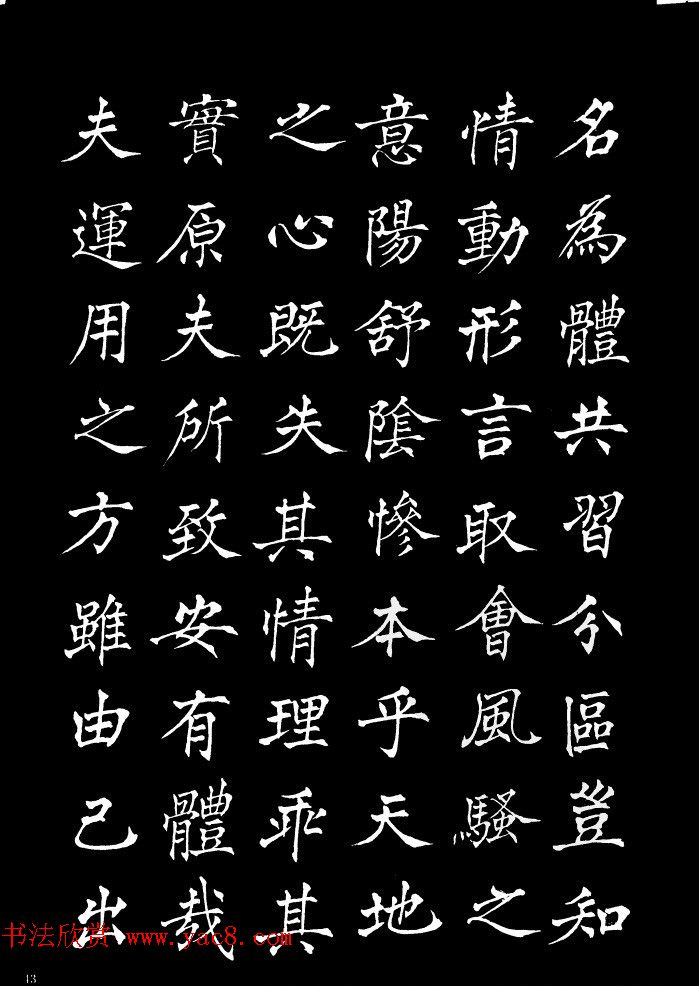 名為體共習分區豈知
情動形言取會風騷之
意陽舒陰慘本乎天地
之心既失其情理乖其
實原夫所致安有體哉
夫運用之方雖由己出
书法欣赏 www.yac8.com
13